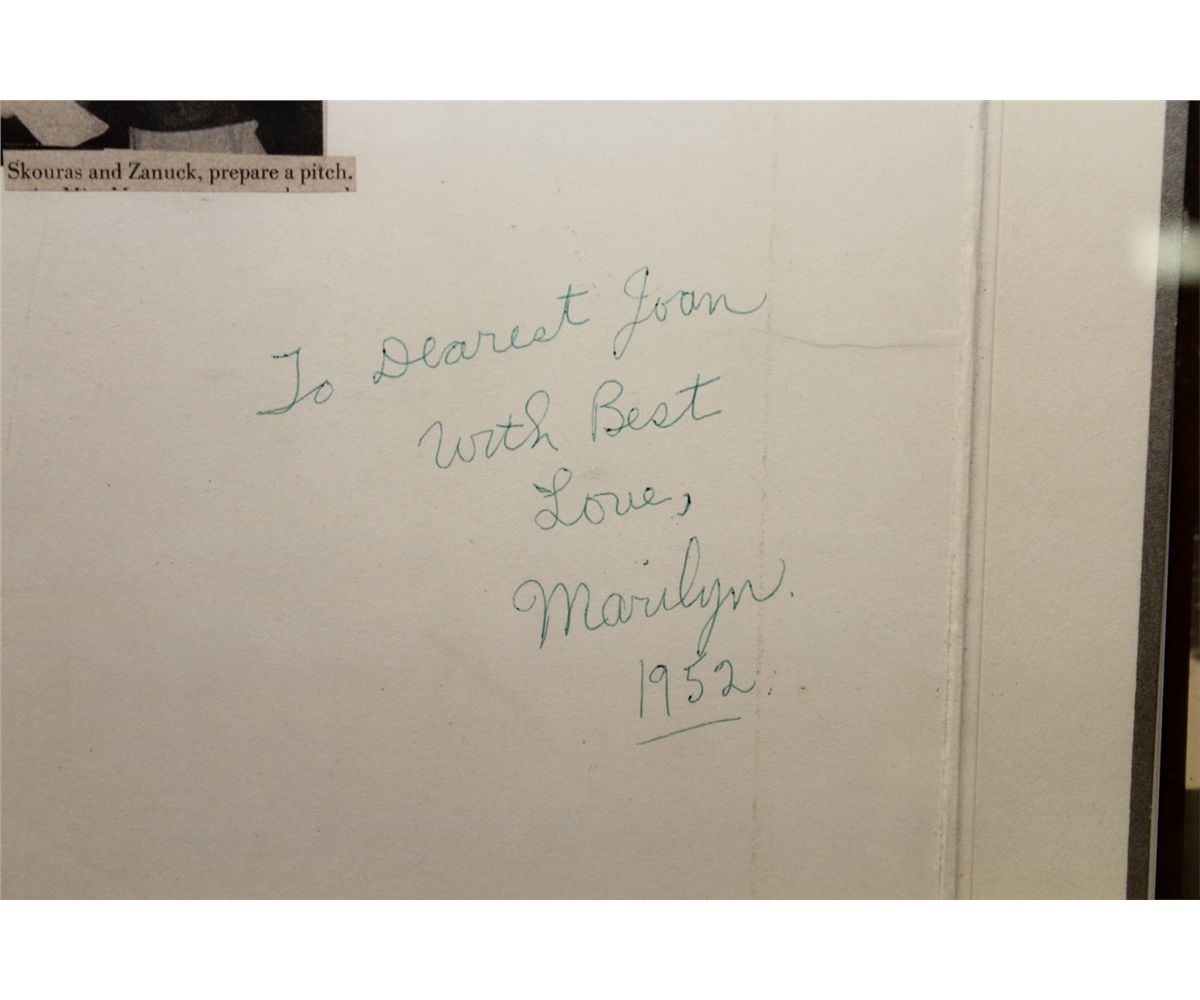 Skouras and Zanuck, prepare a pitch.
To Dearest Joan
With Best
Love,
Marilyn.
1952.